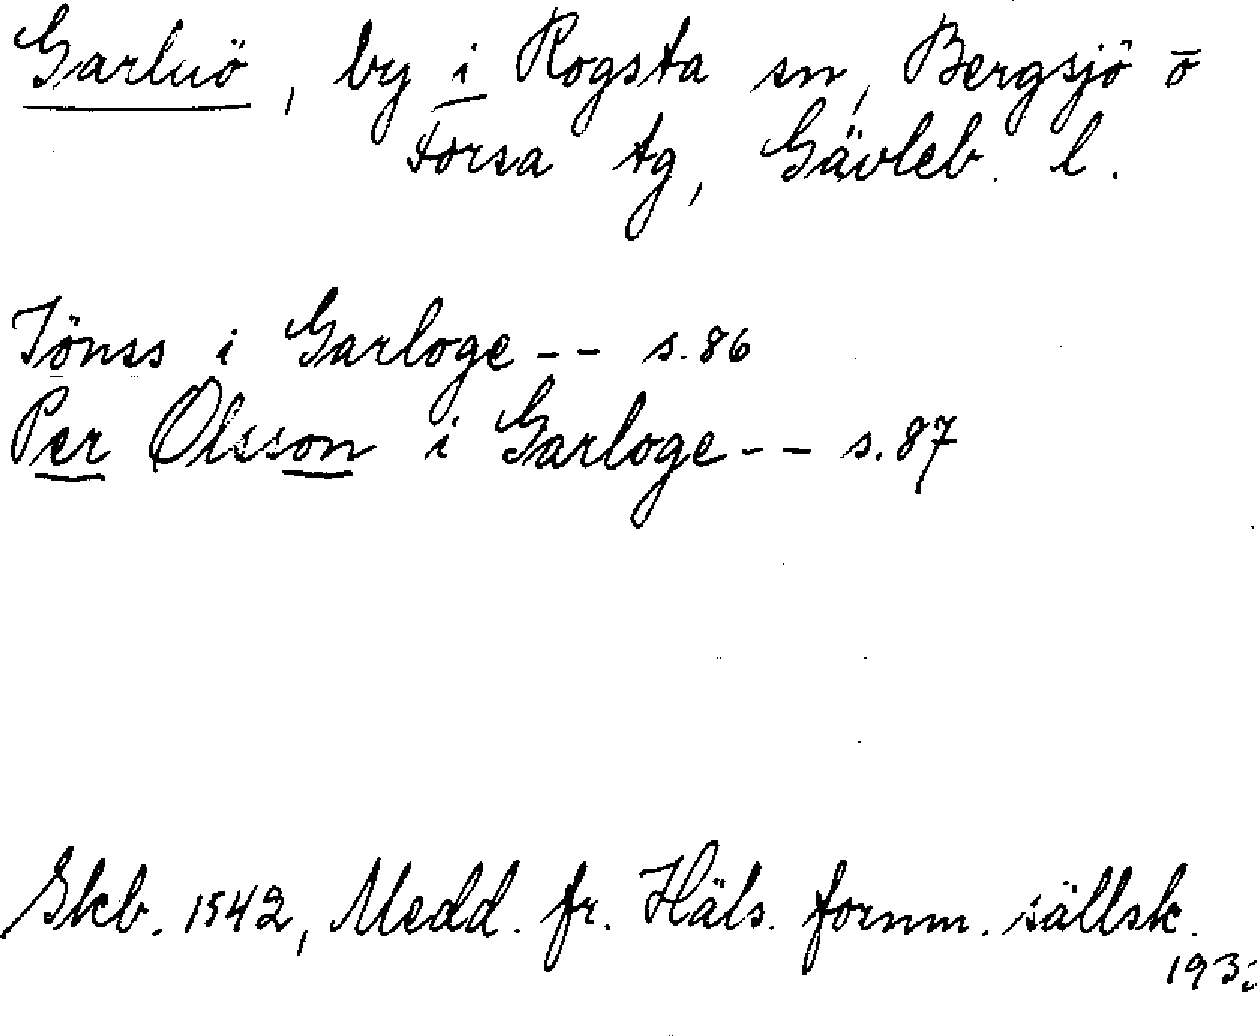 Garluö, by i Rogsta sn, Bergsjö o
Forsa tg, Gävleb. l.
Jönss i Garloge -- s. 86
Per Olsson i Garloge -- s. 87
Skb. 1542, Medd. fr. Häls. fornm. sällsk.